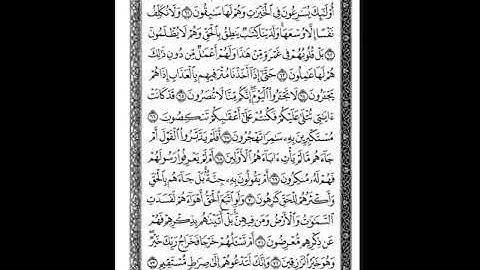 أُولَٰئِكَ يُسَارِعُونَ فِي الْخَيْرَاتِ وَهُمْ لَهَا سَابِقُونَ ٦١ وَلَا نُكَلِّفُ
نَفْسًا إِلَّا وُسْعَهَا وَلَدَيْنَا كِتَابٌ يَنطِقُ بِالْحَقِّ وَهُمْ لَا يُظْلَمُونَ
٦٢ بَلْ قُلُوبُهُمْ فِي غَمْرَةٍ مِّنْ هَٰذَا وَلَهُمْ أَعْمَالٌ مِّن دُونِ ذَٰلِكَ
هُمْ لَهَا عَامِلُونَ ٦٣ حَتَّىٰ إِذَا أَخَذْنَا مُتْرَفِيهِم بِالْعَذَابِ إِذَا هُمْ
يَجْأَرُونَ ٦٤ لَا تَجْأَرُوا الْيَوْمَ إِنَّكُم مِّنَّا لَا تُنصَرُونَ ٦٥ قَدْ كَانَتْ
آيَاتِي تُتْلَىٰ عَلَيْكُمْ فَكُنتُمْ عَلَىٰ أَعْقَابِكُمْ تَنكِصُونَ ٦٦
مُسْتَكْبِرِينَ بِهِ سَامِرًا تَهْجُرُونَ ٦٧ أَفَلَمْ يَدَّبَّرُوا الْقَوْلَ أَمْ
جَاءَهُم مَّا لَمْ يَأْتِ آبَاءَهُمُ الْأَوَّلِينَ ٦٨ أَمْ لَمْ يَعْرِفُوا رَسُولَهُمْ
فَهُمْ لَهُ مُنكِرُونَ ٦٩ أَمْ يَقُولُونَ بِهِ جِنَّةٌ بَلْ جَاءَهُم بِالْحَقِّ
وَأَكْثَرُهُمْ لِلْحَقِّ كَارِهُونَ ٧٠ وَلَوِ اتَّبَعَ الْحَقُّ أَهْوَاءَهُمْ لَفَسَدَتِ
السَّمَاوَاتُ وَالْأَرْضُ وَمَن فِيهِنَّ بَلْ أَتَيْنَاهُم بِذِكْرِهِمْ فَهُمْ
عَن ذِكْرِهِم مُّعْرِضُونَ ٧١ أَمْ تَسْأَلُهُمْ خَرْجًا فَخَرَاجُ رَبِّكَ خَيْرٌ
وَهُوَ خَيْرُ الرَّازِقِينَ ٧٢ وَإِنَّكَ لَتَدْعُوهُمْ إِلَىٰ صِرَاطٍ مُّسْتَقِيمٍ ٧٣